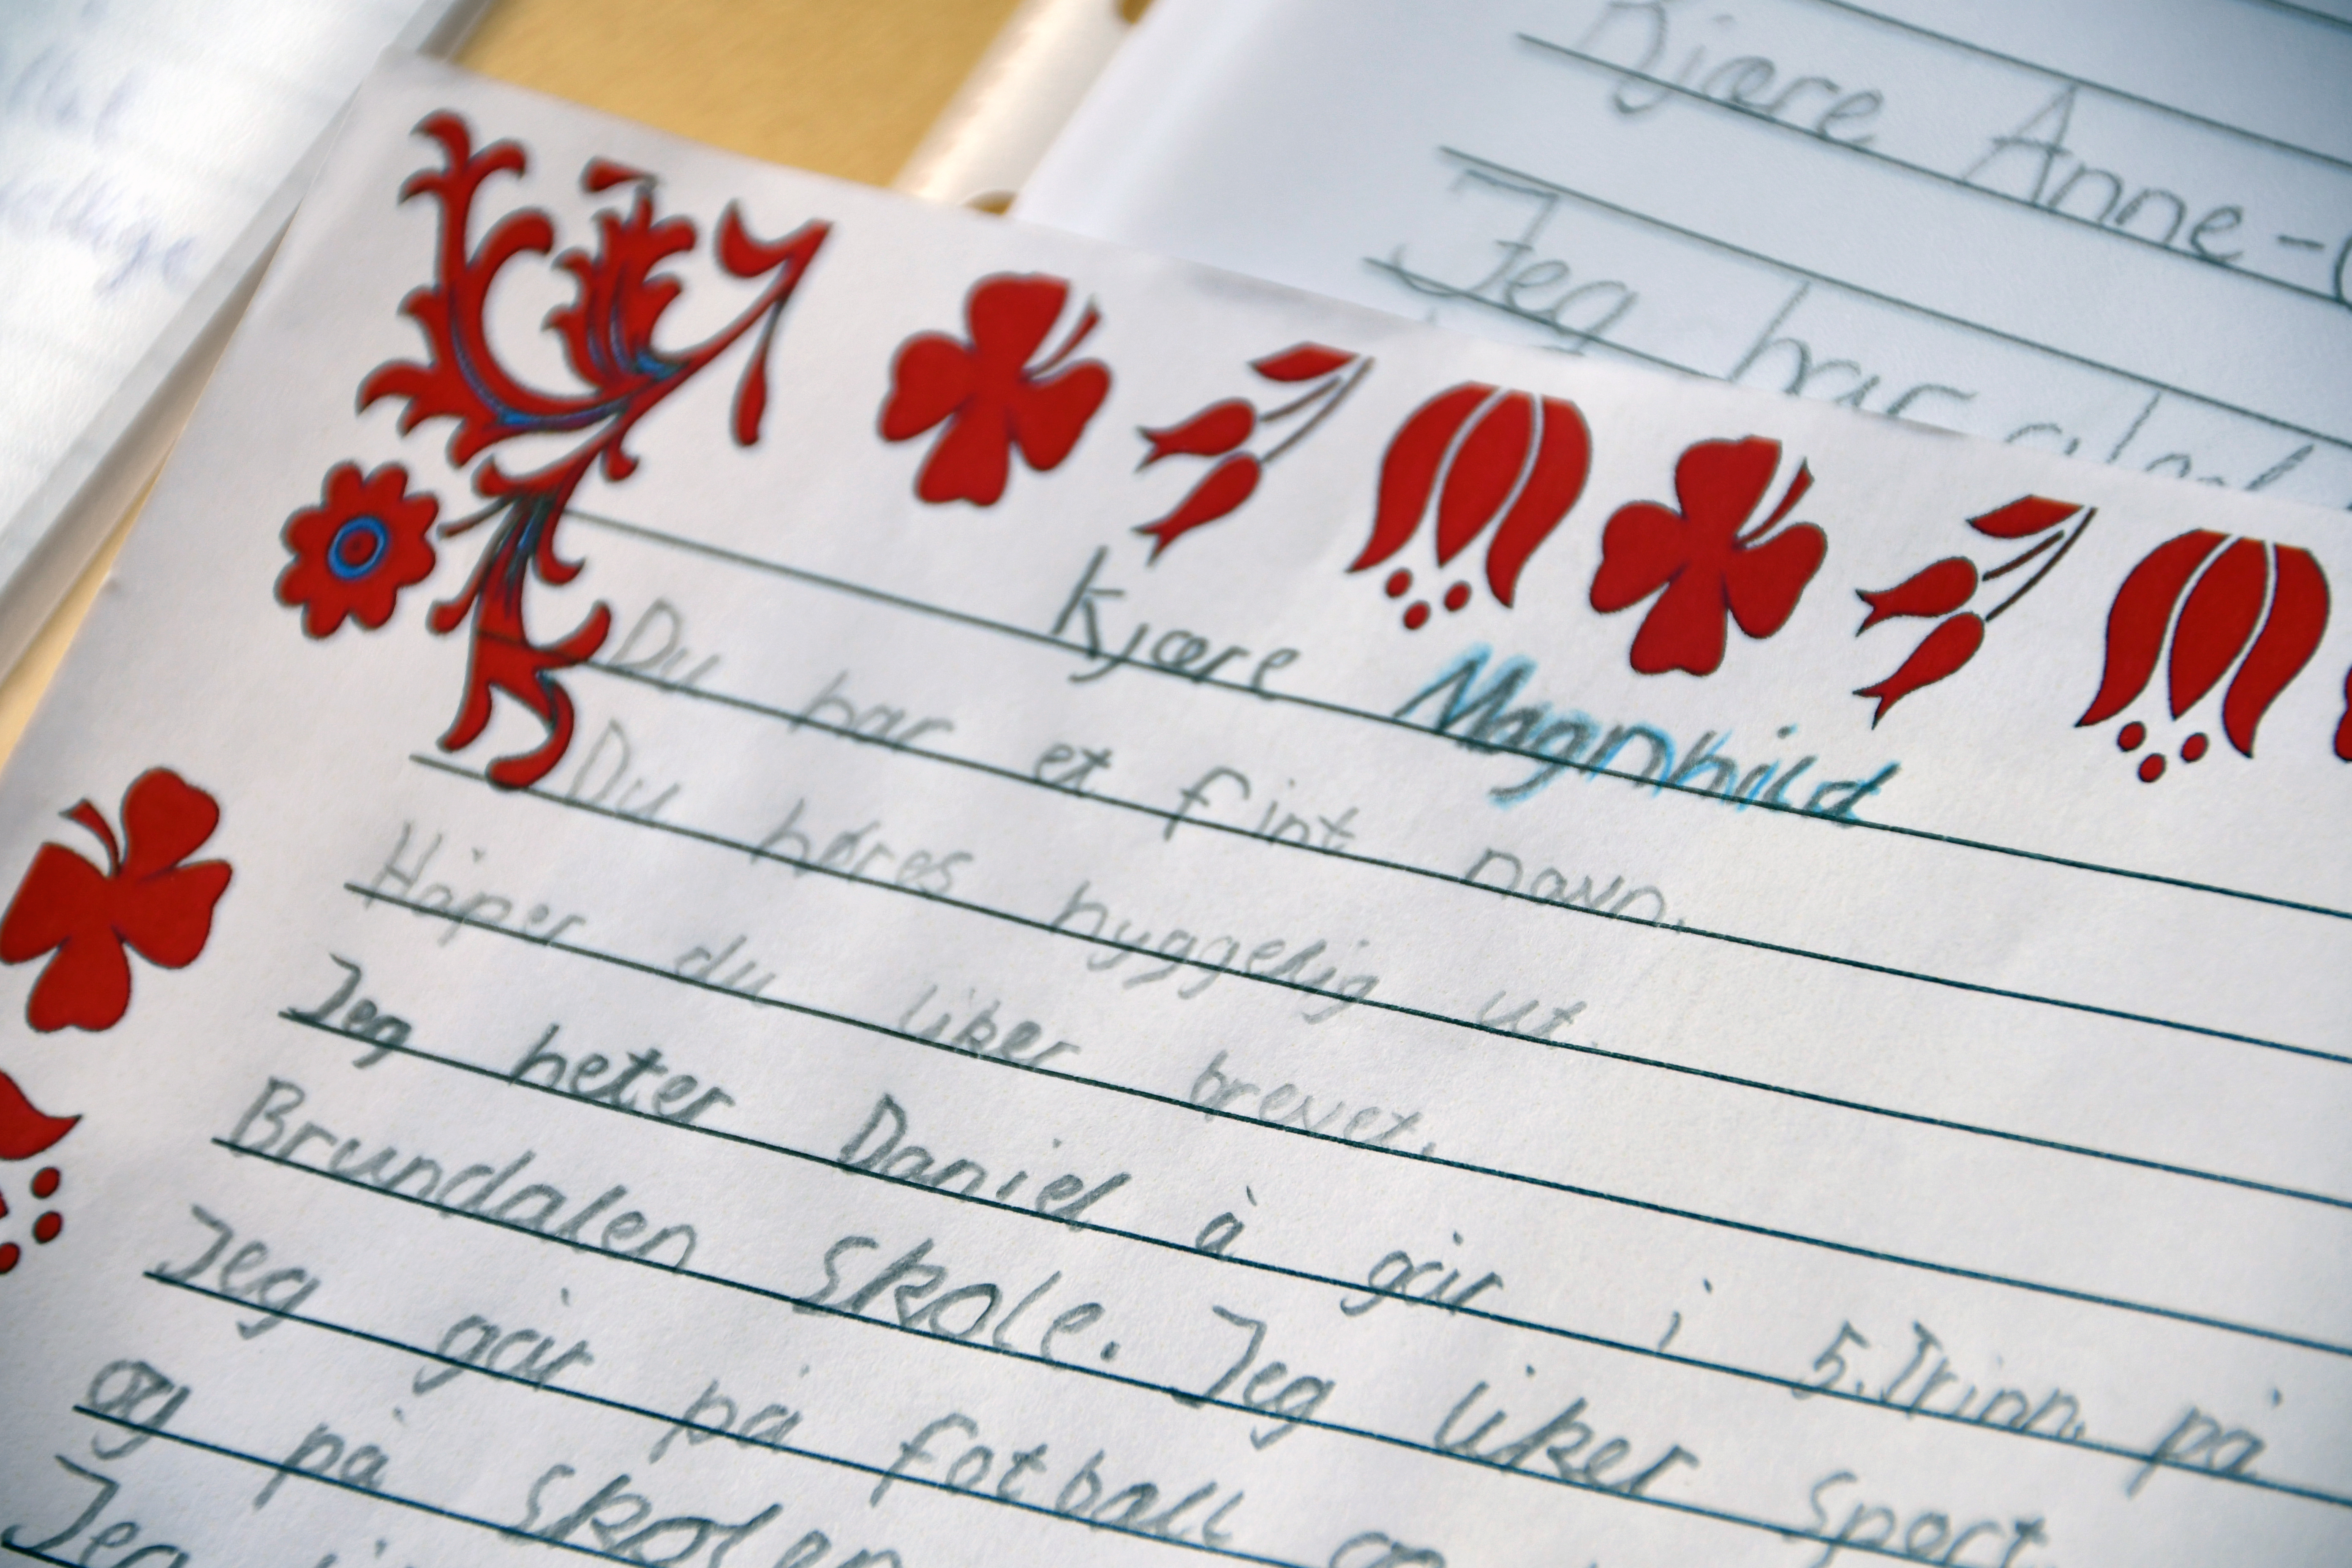 Kjære Anne-
Jeg har
Kjære Magnhild
Du har et fint navn.
Du høres hyggelig ut.
Håper du liker brevet.
Jeg heter Daniel å går i 5.Trinn på
Brundalen skole. Jeg liker sport
Jeg går på fotball og
og på skolen
Jeg